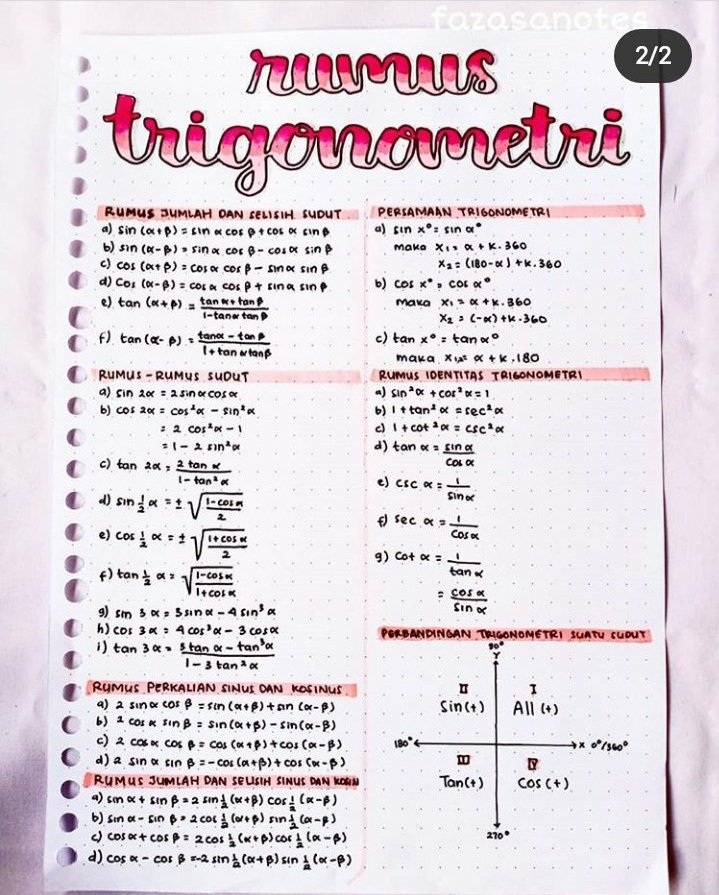 fazasanotes
2/2
rumus
trigonometri
RUMUS JUMLAH DAN SELISIH SUDUT
a) sin (α+β) = sin α cos β + cos α sin β
b) sin (α-β) = sin α cos β - cos α sin β
c) cos (α+β) = cos α cos β - sin α sin β
d) Cos (α-β) = cos α cos β + sin α sin β
e) tan (α+β) = tan α + tan β / 1 - tan α tan β
f) tan (α-β) = tan α - tan β / 1 + tan α tan β
RUMUS - RUMUS SUDUT
a) sin 2α = 2 sin α cos α
b) cos 2α = cos²α - sin²α
= 2 cos²α - 1
= 1 - 2 sin²α
c) tan 2α = 2 tan α / 1 - tan²α
d) sin ½ α = ± √(1 - cos α / 2)
e) cos ½ α = ± √(1 + cos α / 2)
f) tan ½ α = √(1 - cos α / 1 + cos α)
g) sin 3α = 3 sin α - 4 sin³α
h) cos 3α = 4 cos³α - 3 cos α
i) tan 3α = 3 tan α - tan³α / 1 - 3 tan²α
RUMUS PERKALIAN SINUS DAN KOSINUS
a) 2 sin α cos β = sin (α+β) + sin (α-β)
b) 2 cos α sin β = sin (α+β) - sin (α-β)
c) 2 cos α cos β = cos (α+β) + cos (α-β)
d) 2 sin α sin β = -cos (α+β) + cos (α-β)
RUMUS JUMLAH DAN SELISIH SINUS DAN KOSIN
a) sin α + sin β = 2 sin ½ (α+β) cos ½ (α-β)
b) sin α - sin β = 2 cos ½ (α+β) sin ½ (α-β)
c) cos α + cos β = 2 cos ½ (α+β) cos ½ (α-β)
d) cos α - cos β = -2 sin ½ (α+β) sin ½ (α-β)
PERSAMAAN TRIGONOMETRI
a) sin x° = sin α°
maka x₁ = α + k.360
x₂ = (180-α) + k.360
b) cos x° = cos α°
maka x₁ = α + k.360
x₂ = (-α) + k.360
c) tan x° = tan α°
maka x₁,₂ = α + k.180
RUMUS IDENTITAS TRIGONOMETRI
a) sin²α + cos²α = 1
b) 1 + tan²α = sec²α
c) 1 + cot²α = csc²α
d) tan α = sin α / Cos α
e) csc α = 1 / sin α
f) sec α = 1 / cos α
g) cot α = 1 / tan α
= cos α / sin α
PERBANDINGAN TRIGONOMETRI SUATU SUDUT
90°
Y
II I
Sin (+) All (+)
180° x 0°/360°
III IV
Tan (+) Cos (+)
270°